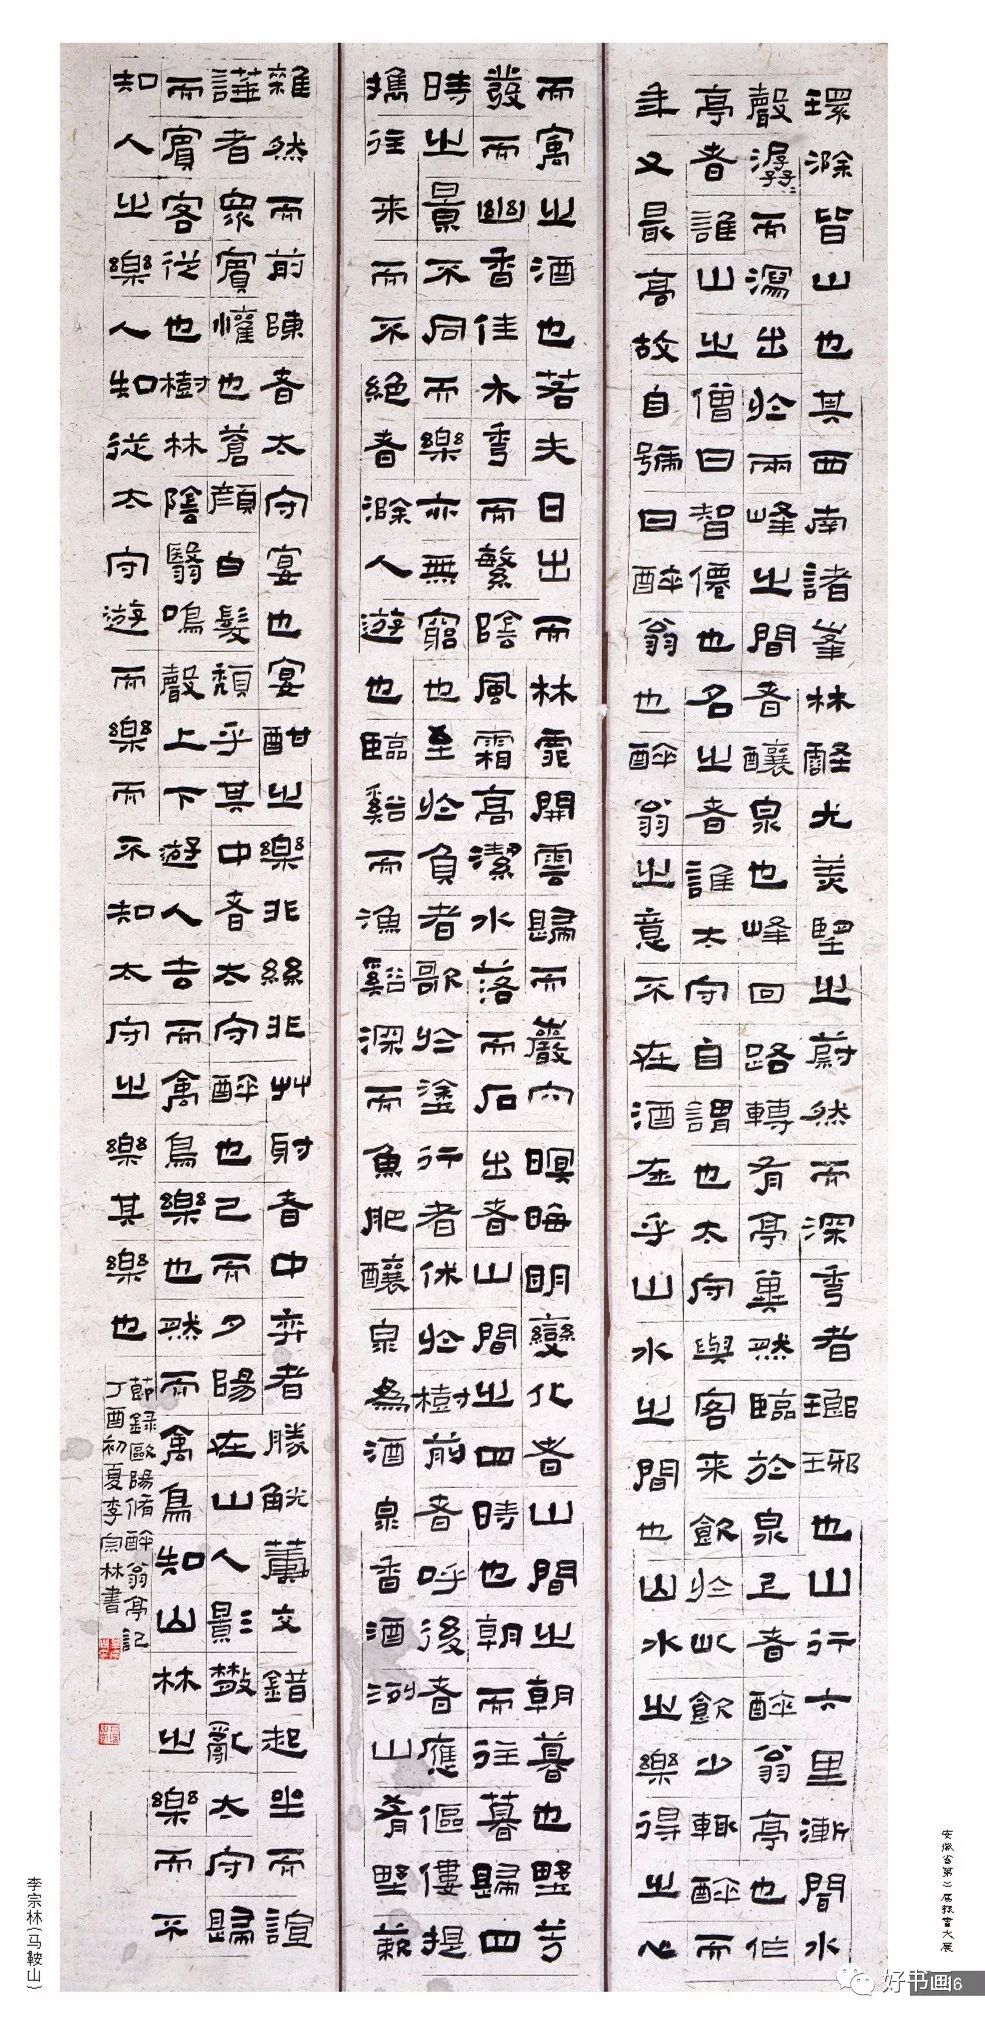 環滁皆山也其西南諸峯林壑尤美望之蔚然而深秀者瑯琊也山行六里漸聞水
聲潺潺而瀉出於兩峰之間者釀泉也峰回路轉有亭翼然臨於泉上者醉翁亭也作
亭者誰山之僧曰智僊也名之者誰太守自謂也太守與客来飲於此飲少輒醉而
年又最高故自號曰醉翁也醉翁之意不在酒在乎山水之間也山水之樂得之心
而寓之酒也若夫日出而林霏開雲歸而巖穴暝晦明變化者山間之朝暮也野芳
發而幽香佳木秀而繁陰風霜高潔水落而石出者山間之四時也朝而往暮歸四
時之景不同而樂亦無窮也至於負者歌於塗行者休於樹前者呼後者應傴僂提
攜往来而不絕者滁人遊也臨谿而漁谿深而魚肥釀泉為酒泉香酒洌山肴野蔌
雜然而前陳者太守宴也宴酣之樂非絲非竹射者中弈者勝觥籌交錯起坐而諠
譁者眾賓懽也蒼顏白髮頹乎其中者太守醉也已而夕陽在山人影散亂太守歸
而賓客從也樹林陰翳鳴聲上下遊人去而禽鳥樂也然而禽鳥知山林之樂而不
知人之樂人知從太守遊而樂而不知太守之樂其樂也
節錄歐陽脩醉翁亭記
丁酉初夏李宗林書
李宗林（马鞍山）
安徽省第二届隸書大展
好书画